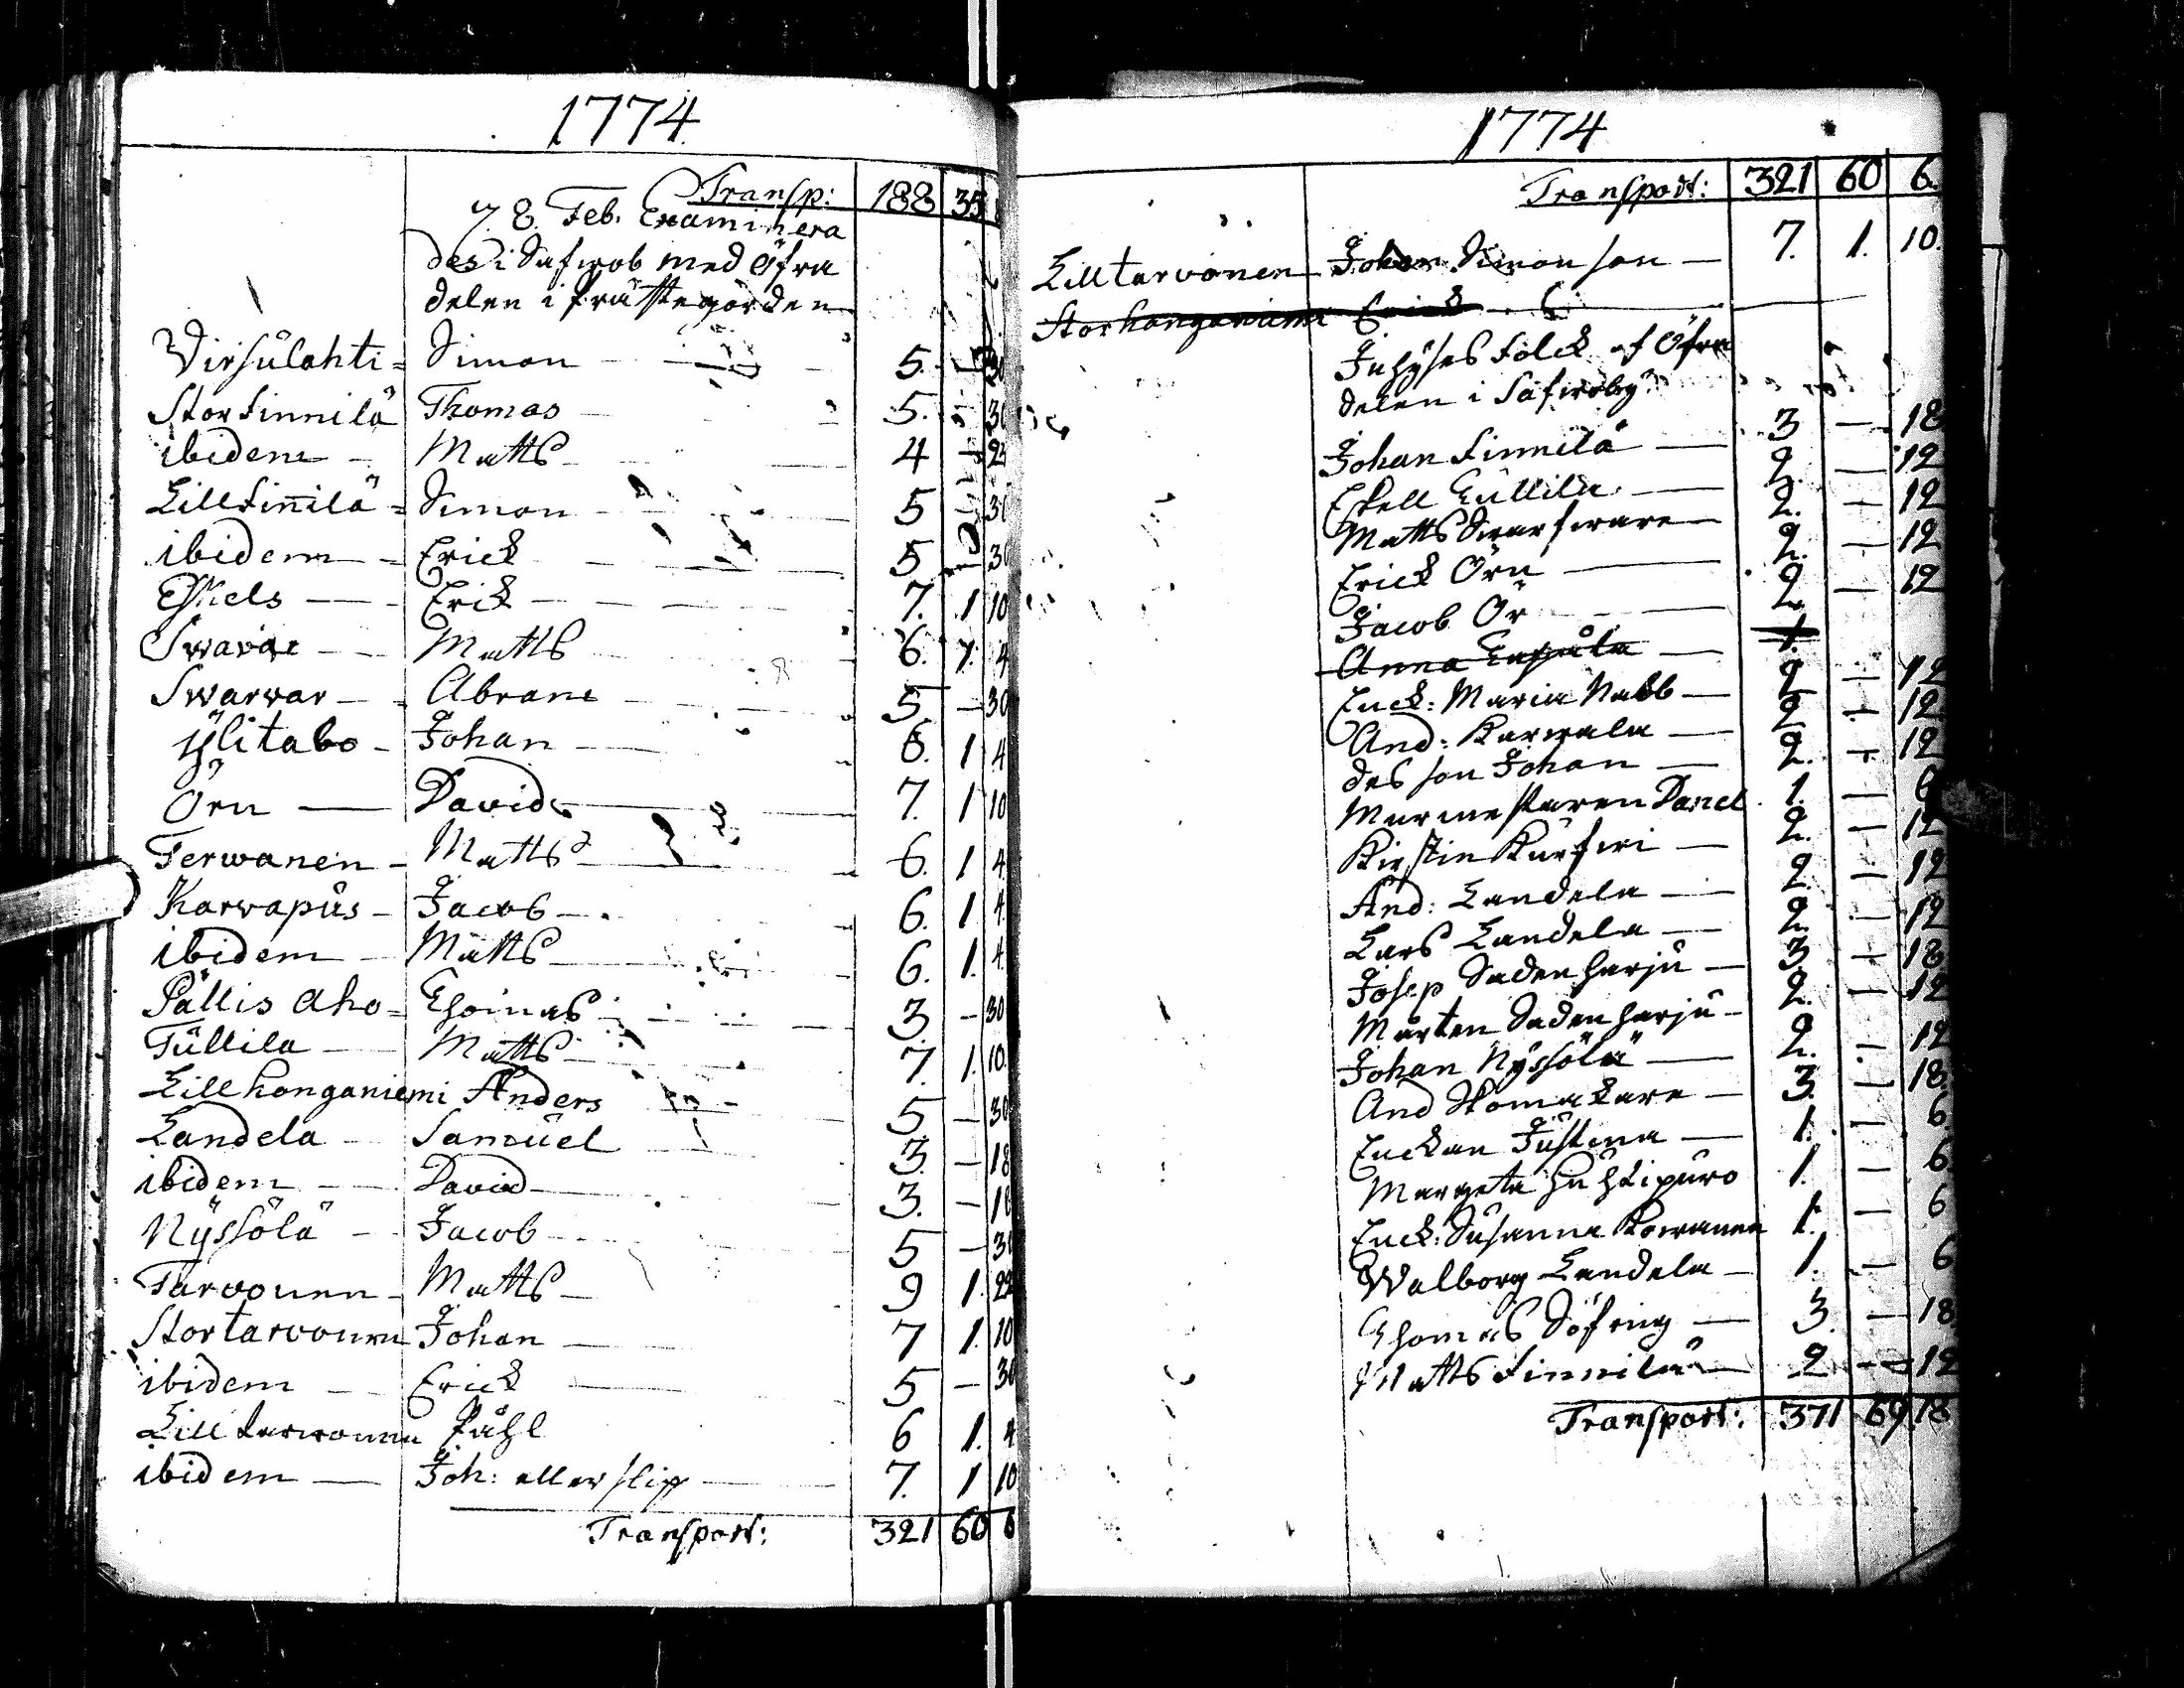 1774.
Transp: 188 35
7. 8. Feb. Examinera
des i Safwob med öfra
delen i prästegården
Virsülahti = Simon 5. — 30
Storfinnilä Thomas 5. — 30
ibidem — Matts 4 — 24
Lillfinnilä = Simon 5 — 30
ibidem — Erick 5 — 30
Eskels — Erik — 7. 1 10
Swarar — Matts 6. 1. 4
Swarvar — Abram 5 — 30
ylitabo — Johan — 6. 1 4
Örn — David 7. 1 10
Terwanen — Matts 6. 1 4
Karvapüs — Jacob — 6. 1. 4.
ibidem — Matts 6. 1. 4.
Pällis aho = Thomas 3 — 30
Tüllila — Matts 7. 1. 10.
Lillkonganiemi Anders 5 — 30
Landela — Samüel 3. — 18
ibidem — David 3. — 18
Nyssölä — Jacob 5 — 30
Tarvonen — Matts 9 1. 22
Stortarvonen Johan 7 1. 10
ibidem — Erick 5 — 30
Lilltarvonen Påhl 6 1. 4
ibidem — Joh: eller 7. 1 10
Transport: 321 60 6
1774
Transport: 321 60 6.
Lilltarvonen Johan Simonson — 7. 1. 10.
Storkonganiemi Erick
Inhyses folck af Öfra
delen i Safwoby
Johan Finnilä — 3 — 18
Eskell Tüllila — 2. — 12
Matts Swarfware 2. — 12
Erick Örn — 2. — 12
Jacob Ör — 2. — 12
Anna — 1.
Enck: Maria Nabb — 2 — 12
And: Karwala — 2 — 12.
des son Johan — 2. — 12
Murmestaren Danel 1. — 6
Kirstin — 2. — 12
And: Landela — 2. — 12
Lars Landela — 2. — 12
Josep Sadenharju — 3 — 18
Mårten Sadenharju — 2. — 12
Johan Nyssölä — 2. — 12
And Skomakare — 3. — 18.
Enckan Jüstina — 1. — 6.
Margeta Huhtipüro 1. — 6
Enck: Süsanna Kowanen 1. — 6
Walborg Landela — 1. — 6
Thomas Söfring — 3. — 18.
Matts Finnilä — 2 — 12
Transport: 371 69 18